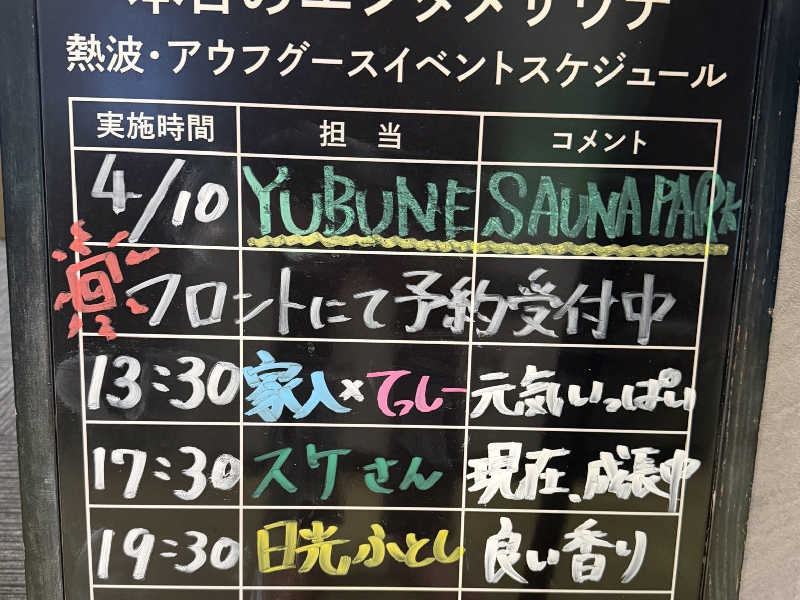 本日のエンタメサウナ
熱波・アウフグースイベントスケジュール
実施時間 担当 コメント
4/10 YUBUNE SAUNA PARK
フロントにて予約受付中
13:30 家入×てっしー 元気いっぱい
17:30 スケさん 現在、成長中
19:30 日光ふとし 良い香り